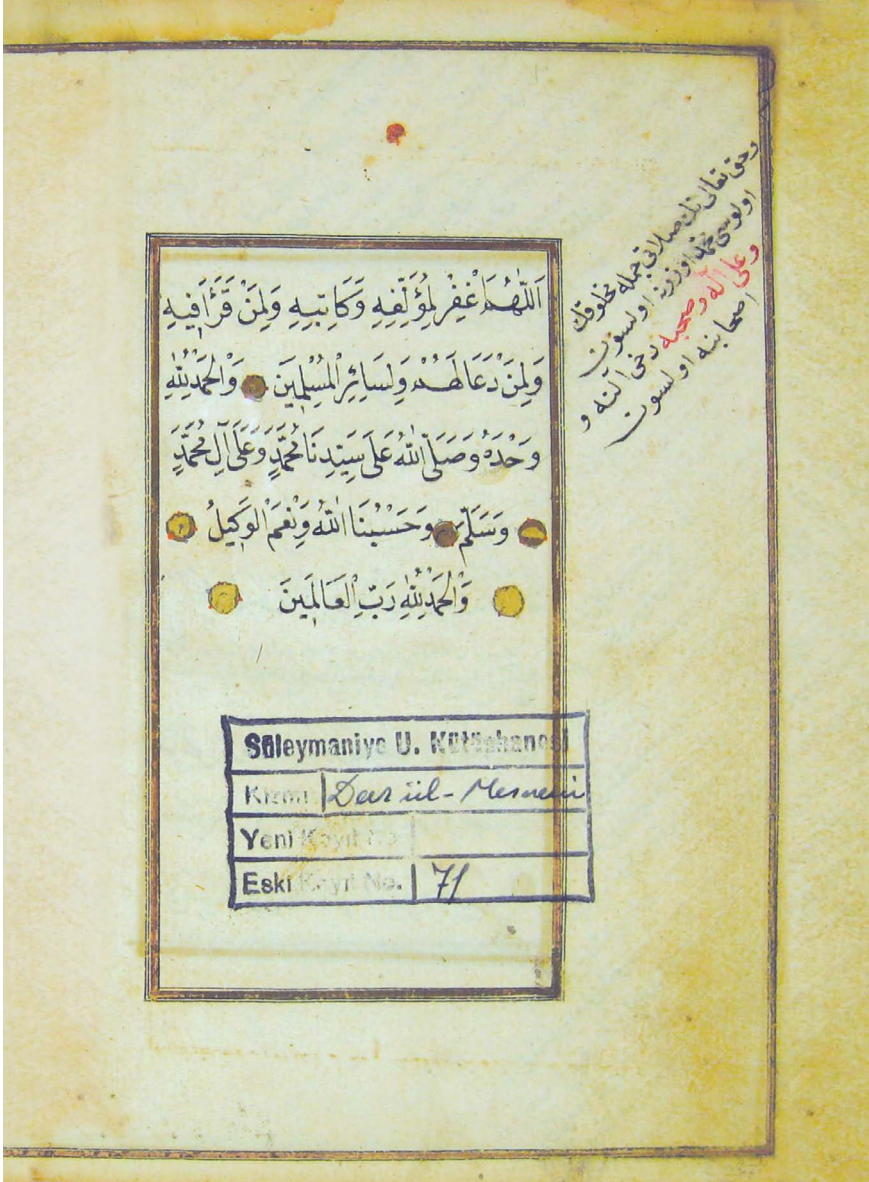 اَللّٰهُمَّ اغْفِرْ لِمُؤَلِّفِهِ وَكَاتِبِهِ وَلِمَنْ قَرَأَ فِيهِ
وَلِمَنْ دَعَا لَهُمْ وَلِسَائِرِ الْمُسْلِمِينَ وَالْحَمْدُ لِلّٰهِ
وَحْدَهُ وَصَلَّى اللّٰهُ عَلَى سَيِّدِنَا مُحَمَّدٍ وَعَلَى آلِ مُحَمَّدٍ
وَسَلَّمَ وَحَسْبُنَا اللّٰهُ وَنِعْمَ الْوَكِيلُ
وَالْحَمْدُ لِلّٰهِ رَبِّ الْعَالَمِينَ
وحق تعالى نك صلاتى جمله مخلوقك
اولوسى محمد اوزرينه اولسون
وعلى آله وصحبه دخى آلنه و
اصحابنه اولسون
Süleymaniye U. Kütüphanesi
Kısmı Dar ül-Mesnevi
Yeni Kayıt No
Eski Kayıt No. 71